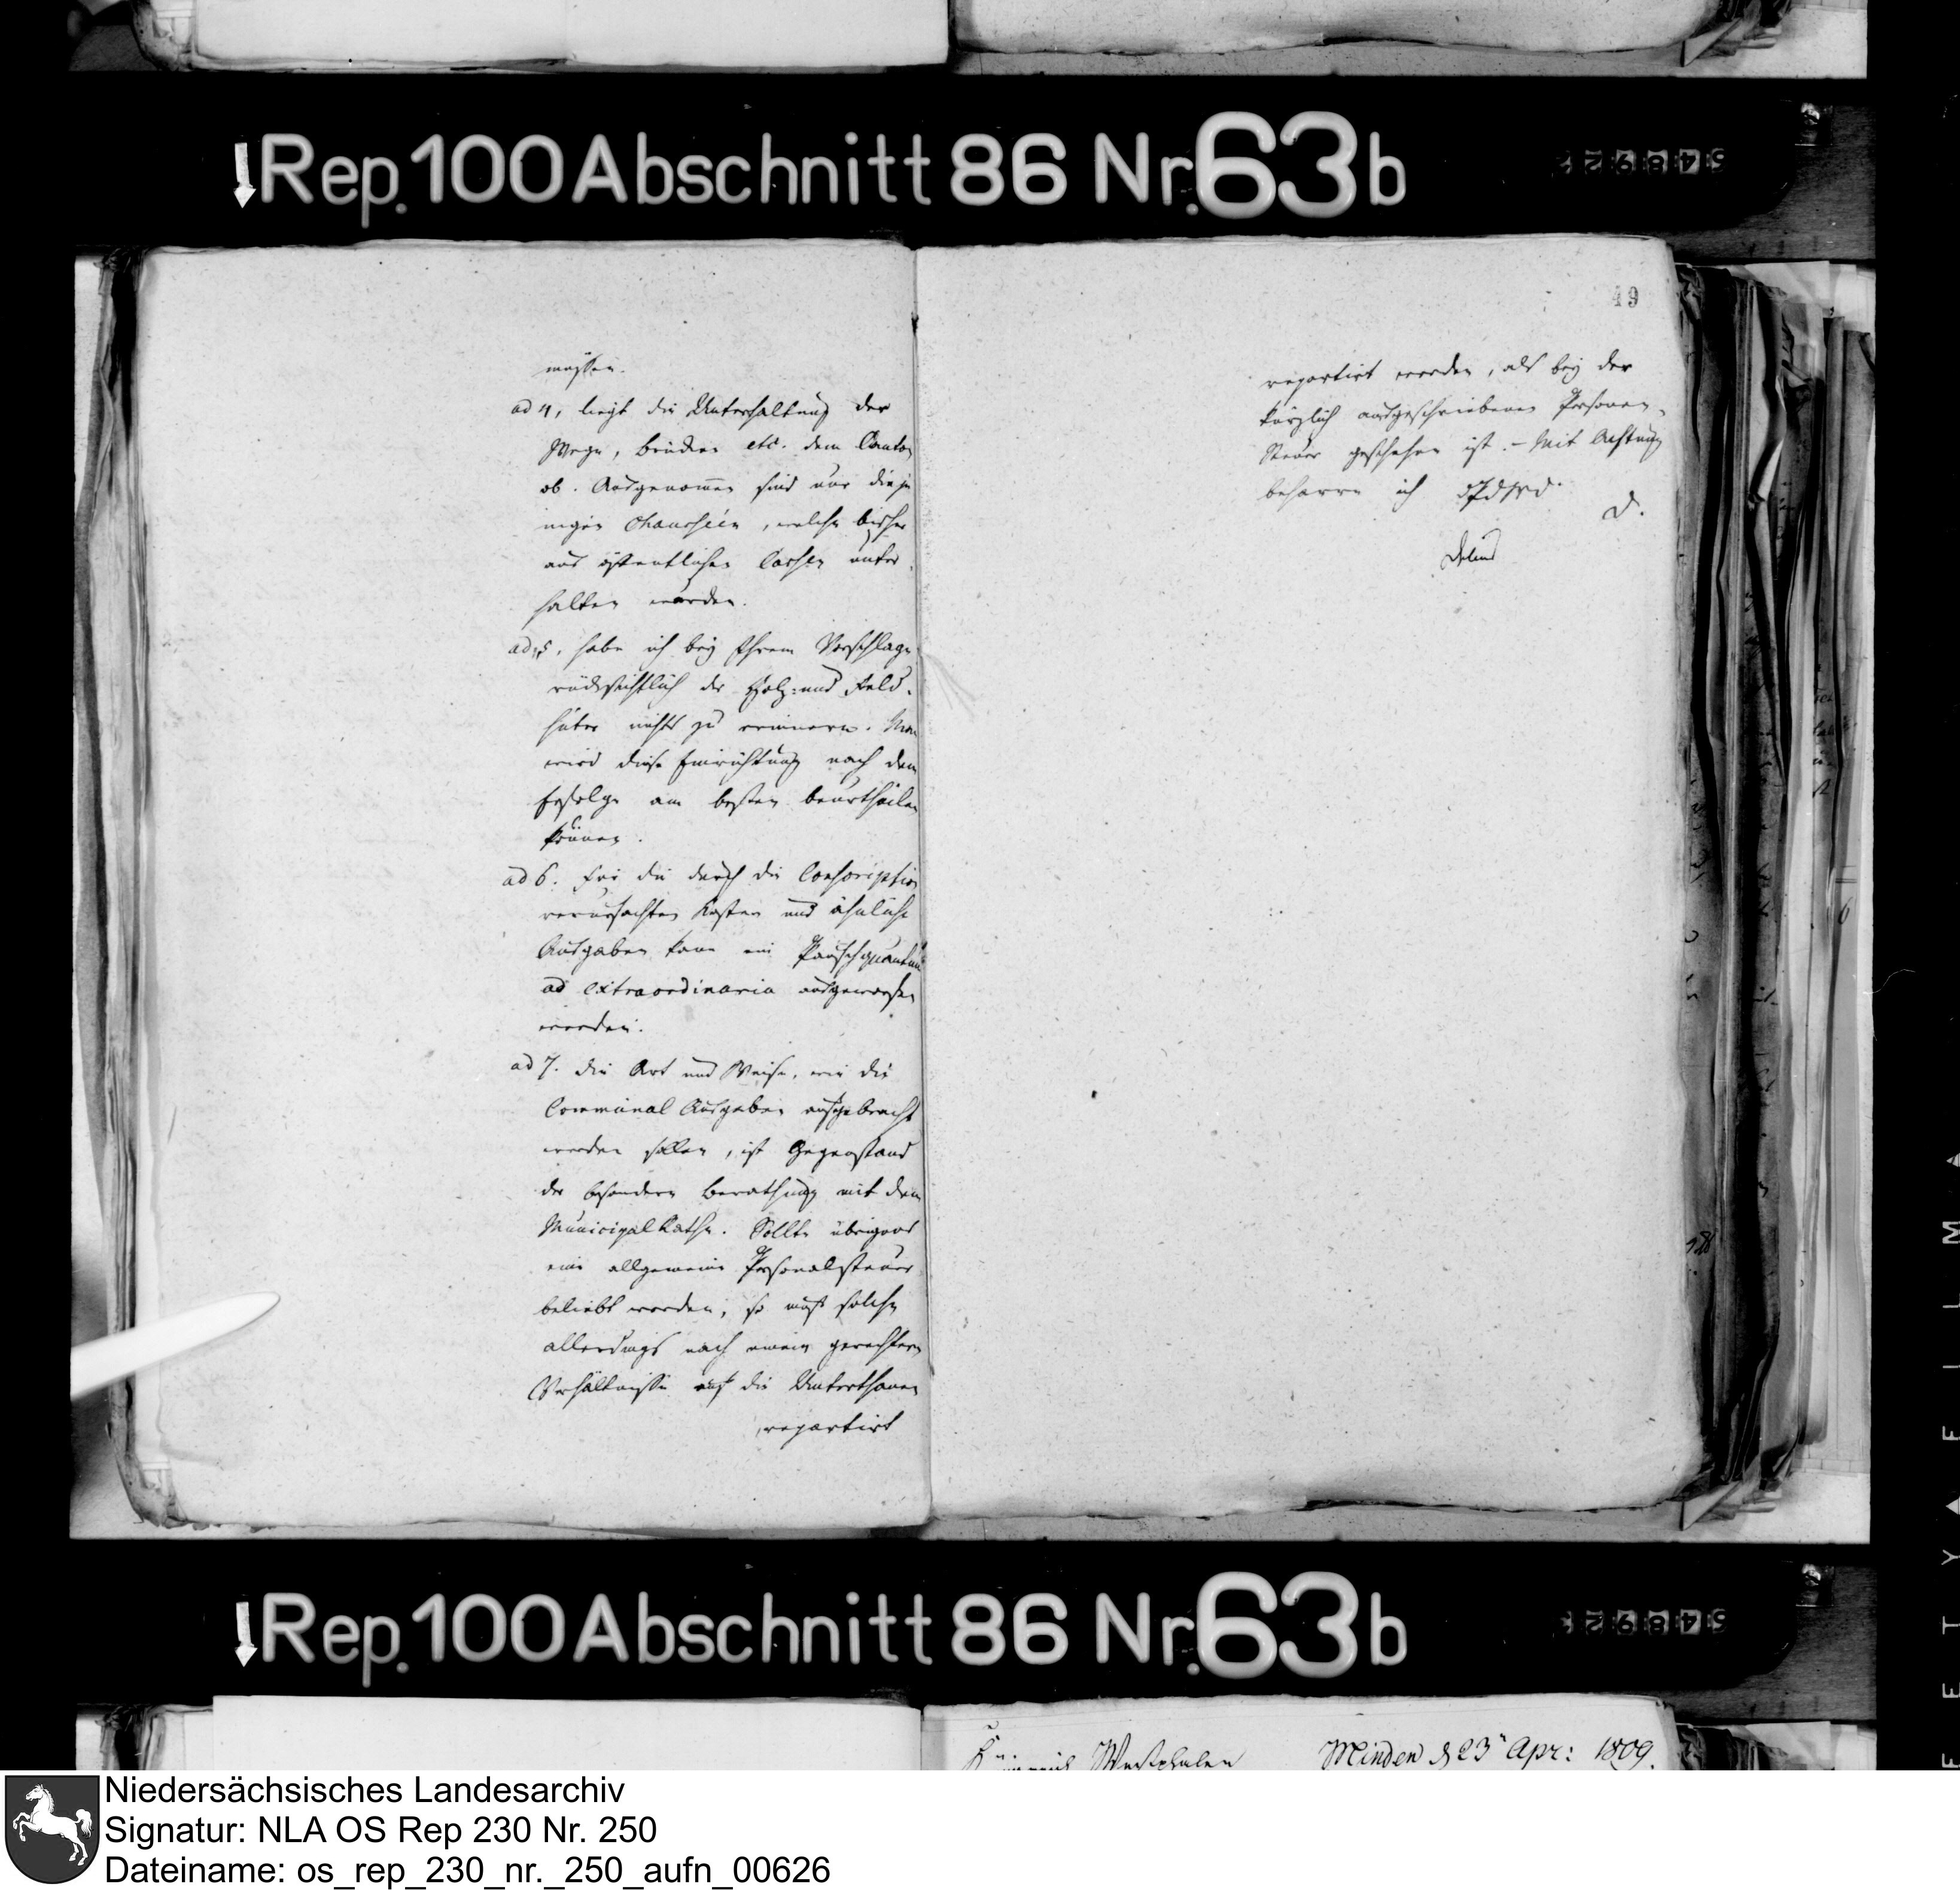 Rep. 100 Abschnitt 86 Nr. 63 b
54892
49
müssen.
ad 4, liegt die Unterhaltung der
Wege, Brücken etc. dem Canton
ob. Ausgenom̄en sind nur dieje
nigen Chausséen, welche bisher
aus öffentlichen Cassen unter-
halten wurden.
ad 5, habe ich bey Ihrem Vorschlage
rücksichtlich der Holz- und Feld-
hüter nichts zu erinnern. Man
wird diese Einrichtung nach dem
Erfolge am besten beurtheilen
können.
ad 6. Für die durch die Conscription
verursachten Kosten und ähnliche
Ausgaben kann ein Pauschquantum
ad extraordinaria ausgeworfen
werden.
ad 7. die Art und Weise, wie die
Communal Ausgaben aufgebracht
werden sollen, ist Gegenstand
der besondern Berathung mit dem
Municipal Rathe. Sollte übrigens
eine allgemeine Personalsteuer
beliebt werden, so muß solche
allerdings nach einem gerechtern
Verhältnisse auf die Unterthanen
repartirt
repartirt werden, als bey der
kürzlich ausgeschriebenen Personen-
Steuer geschehen ist. – Mit Achtung
beharre ich
D.
Delius
Rep. 100 Abschnitt 86 Nr. 63 b
54892
Königreich Westphalen Minden d 23 Apr: 1809.
Niedersächsisches Landesarchiv
Signatur: NLA OS Rep 230 Nr. 250
Dateiname: os_rep_230_nr._250_aufn_00626